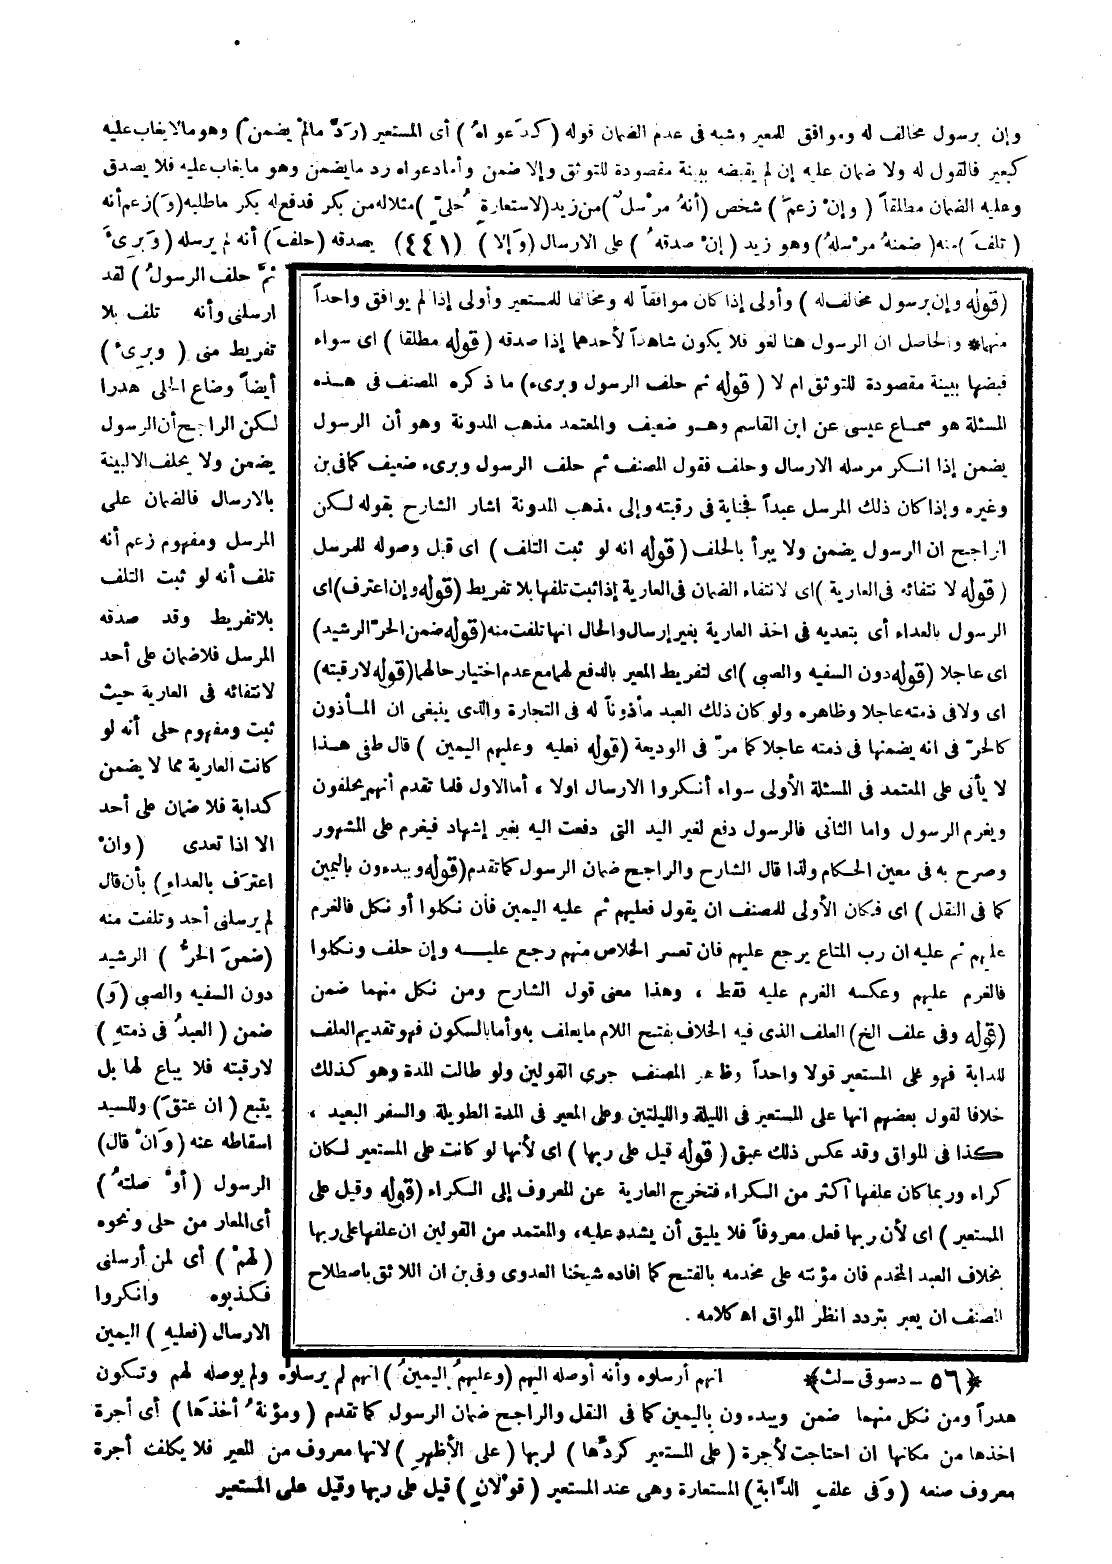 وإن برسول مخالف له وموافق للمعير وشبه فى عدم الضمان قوله (كدَعواهُ) أى المستعير (ردَّ مالمْ يضمنْ) وهو مالا يغاب عليه
كبعير فالقول له ولا ضمان عليه إن لم يقبضه ببينة مقصودة للتوثق وإلا ضمن وأما دعواه رد ما يضمن وهو ما يغاب عليه فلا يصدق
وعليه الضمان مطلقاً (وإنْ زعمَ) شخص (أنهُ مرْسل ) من زيد (لاستعارةِ حُلىّ) مثلا له من بكر فدفع له بكر ما طلبه (وَ) زعم أنه
(تلفَ) منه (ضمنهُ مرْسلهُ) وهو زيد (إنْ صدقهُ) على الارسال (وَإلا) (٤٤١) يصدقه (حلفَ) أنه لم يرسله (وَبرىءَ
ثمَّ حلف الرسولُ) لقد
ارسلنى وأنه تلف بلا
تفريط منى (وبرىءَ)
أيضاً وضاع الحلى هدرا
لكن الراجح أن الرسول
يضمن ولا يحلف الا لبينة
بالارسال فالضمان على
المرسل ومفهوم زعم أنه
تلف أنه لو ثبت التلف
بلا تفريط وقد صدقه
المرسل فلا ضمان على أحد
لانتفائه فى العارية حيث
ثبت ومفهوم حلى أنه لو
كانت العارية مما لا يضمن
كدابة فلا ضمان على أحد
الا اذا تعدى (وانْ
اعترَف بالعداءِ) بأن قال
لم يرسلنى أحد وتلفت منه
(ضمنَ الحرُّ) الرشيد
دون السفيه والصبى (وَ)
ضمن (العبدُ فى ذمتهِ)
لا رقبته فلا يباع لها بل
يتبع (ان عتقَ) وللسيد
اسقاطه عنه (وَانْ قال)
الرسول (أوْ صلتهُ)
أى المعار من حلى ونحوه
(لهمْ) أى لمن أرسلنى
فكذبوه وانكروا
الارسال (فعليهِ) اليمين
(قوله وإن برسول مخالف له) وأولى إذا كان موافقاً له ومخالفا للمستعير وأولى إذا لم يوافق واحداً
منهما* والحاصل ان الرسول هنا لغو فلا يكون شاهداً لأحدهما إذا صدقه (قوله مطلقا) اى سواء
قبضها ببينة مقصودة للتوثق ام لا (قوله ثم حلف الرسول وبرىء) ما ذكره المصنف فى هذه
المسئلة هو سماع عيسى عن ابن القاسم وهو ضعيف والمعتمد مذهب المدونة وهو أن الرسول
يضمن إذا انكر مرسله الارسال وحلف فقول المصنف ثم حلف الرسول وبرىء ضعيف كما فى بن
وغيره وإذا كان ذلك المرسل عبداً فجناية فى رقبته وإلى مذهب المدونة اشار الشارح بقوله لكن
الراجح ان الرسول يضمن ولا يبرأ بالحلف (قوله انه لو ثبت التلف) اى قبل وصوله للمرسل
(قوله لا نتفائه فى العارية) اى لانتفاء الضمان فى العارية إذا ثبت تلفها بلا تفريط (قوله وإن اعترف) اى
الرسول بالعداء أى بتعديه فى اخذ العارية بغير إرسال والحال انها تلفت منه (قوله ضمن الحرّ الرشيد)
اى عاجلا (قوله دون السفيه والصبى) اى لتفريط المعير بالدفع لهما مع عدم اختيار حالهما (قوله لا رقبته)
اى ولا فى ذمته عاجلا وظاهره ولو كان ذلك العبد مأذوناً له فى التجارة والذى ينبغى ان المأذون
كالحرّ فى انه يضمنها فى ذمته عاجلا كما مرّ فى الوديعة (قوله فعليه وعليهم اليمين) قال طفى هذا
لا يأتى على المعتمد فى المسئلة الأولى سواء أنكروا الارسال اولا ، أما الاول فلما تقدم أنهم يحلفون
ويغرم الرسول واما الثانى فالرسول دفع لغير اليد التى دفعت اليه بغير إشهاد فيغرم على المشهور
وصرح به فى معين الحكام ولذا قال الشارح والراجح ضمان الرسول كما تقدم (قوله ويبدءون باليمين
كما فى النقل) اى فكان الأولى للمصنف ان يقول فعليهم ثم عليه اليمين فأن نكلوا أو نكل فالغرم
عليهم ثم عليه ان رب المتاع يرجع عليهم فان تعسر الخلاص منهم رجع عليه وإن حلف ونكلوا
فالغرم عليهم وعكسه الغرم عليه فقط ، وهذا معنى قول الشارح ومن نكل منهما ضمن
(قوله وفى علف الخ) العلف الذى فيه الخلاف بفتح اللام ما يعلف به وأما بالسكون فهو تقديم العلف
للدابة فهو على المستعير قولا واحداً وظاهر المصنف جرى القولين ولو طالت المدة وهو كذلك
خلافا لقول بعضهم انها على المستعير فى الليلة والليلتين وعلى المعير فى المدة الطويلة والسفر البعيد ،
كذا فى المواق وقد عكس ذلك عبق (قوله قيل على ربها) اى لأنها لو كانت على المستعير لكان
كراء وربما كان علفها أكثر من الكراء فتخرج العارية عن المعروف إلى الكراء (قوله وقيل على
المستعير) اى لأن ربها فعل معروفاً فلا يليق أن يشدد عليه، والمعتمد من القولين ان علفها على ربها
بخلاف العبد المخدم فان مؤنته على مخدمه بالفتح كما افاده شيخنا العدوى وفى بن ان اللائق باصطلاح
المصنف ان يعبر بتردد انظر المواق اه كلامه .
﴿٥٦ - دسوقى - لث﴾ انهم أرسلوه وأنه أوصله اليهم (وعليهمُ اليمينُ) انهم لم يرسلوه ولم يوصله لهم وتكون
هدراً ومن نكل منهما ضمن ويبدءون باليمين كما فى النقل والراجح ضمان الرسول كما تقدم (ومؤنةُ أخذَها) أى أجرة
اخذها من مكانها ان احتاجت لأجرة (على المستعيرِ كردِّها) لربها (على الأظهرِ) لانها معروف من المعير فلا يكلف أجرة
معروف صنعه (وَفى علفِ الدَّابةِ) المستعارة وهى عند المستعير (قوْلانِ) قيل على ربها وقيل على المستعير